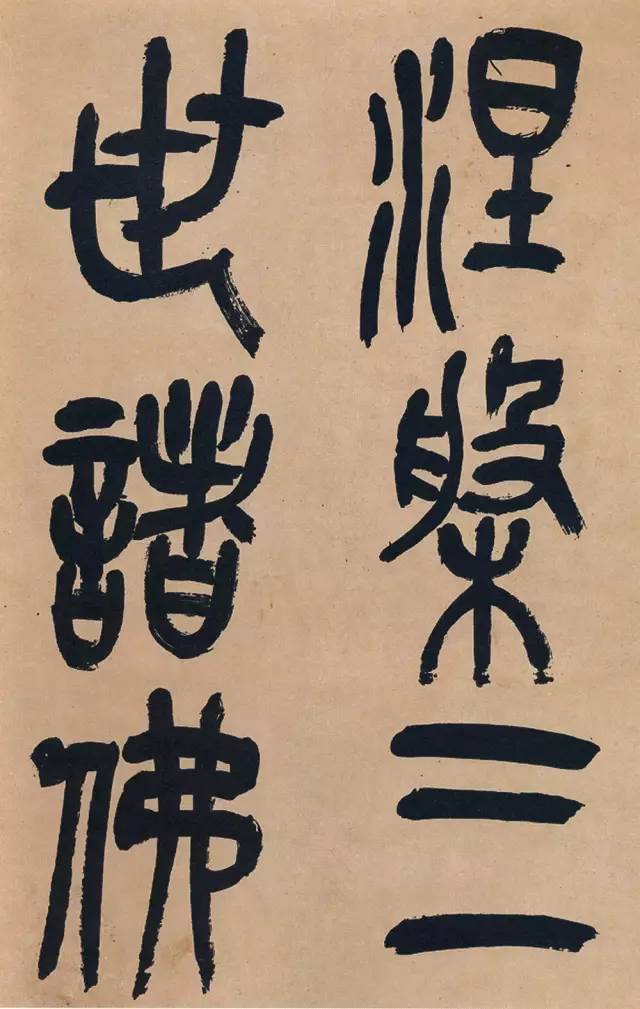 涅槃三
世諸佛